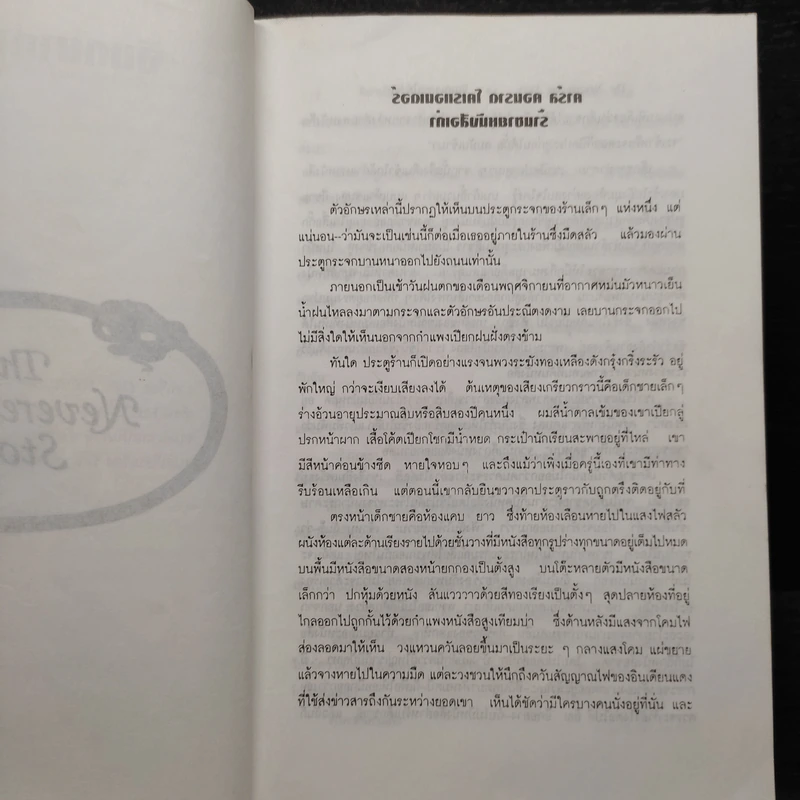 คาร์ล คอนราด โคเรแอนเดอร์
ร้านขายหนังสือเก่า
ตัวอักษรเหล่านี้ปรากฏให้เห็นบนประตูกระจกของร้านเล็กๆ แห่งหนึ่ง แต่
แน่นอน--ว่ามันจะเป็นเช่นนี้ก็ต่อเมื่อเธออยู่ภายในร้านซึ่งมืดสลัว แล้วมองผ่าน
ประตูกระจกบานหนาออกไปยังถนนเท่านั้น
ภายนอกเป็นเช้าวันฝนตกของเดือนพฤศจิกายนที่อากาศหม่นมัวหนาวเย็น
น้ำฝนไหลลงมาตามกระจกและตัวอักษรอันประณีตงดงาม เลยบานกระจกออกไป
ไม่มีสิ่งใดให้เห็นนอกจากกำแพงเปียกฝนฝั่งตรงข้าม
ทันใด ประตูร้านก็เปิดอย่างแรงจนพวงระฆังทองเหลืองดังกรุ๋งกริ๋งระรัว อยู่
พักใหญ่ กว่าจะเงียบเสียงลงได้ ต้นเหตุของเสียงเกรียวกราวนี้คือเด็กชายเล็กๆ
ร่างอ้วนอายุประมาณสิบหรือสิบสองปีคนหนึ่ง ผมสีน้ำตาลเข้มของเขาเปียกลู่
ปรกหน้าผาก เสื้อโค้ตเปียกโชกมีน้ำหยด กระเป๋านักเรียนสะพายอยู่ที่ไหล่ เขา
มีสีหน้าค่อนข้างซีด หายใจหอบๆ และถึงแม้ว่าเพิ่งเมื่อครู่นี้เองที่เขามีท่าทาง
รีบร้อนเหลือเกิน แต่ตอนนี้เขากลับยืนขวางคาประตูราวกับถูกตรึงติดอยู่กับที่
ตรงหน้าเด็กชายคือห้องแคบ ยาว ซึ่งท้ายห้องเลือนหายไปในแสงไฟสลัว
ผนังห้องแต่ละด้านเรียงรายไปด้วยชั้นวางที่มีหนังสือทุกรูปร่างทุกขนาดอยู่เต็มไปหมด
บนพื้นมีหนังสือขนาดสองหน้ายกกองเป็นตั้งสูง บนโต๊ะหลายตัวมีหนังสือขนาด
เล็กกว่า ปกหุ้มด้วยหนัง สันแวววาวด้วยสีทองเรียงเป็นตั้งๆ สุดปลายห้องที่อยู่
ไกลออกไปถูกกั้นไว้ด้วยกำแพงหนังสือสูงเทียมบ่า ซึ่งด้านหลังมีแสงจากโคมไฟ
ส่องลอดมาให้เห็น วงแหวนควันลอยขึ้นมาเป็นระยะ ๆ กลางแสงโคม แผ่ขยาย
แล้วจางหายไปในความมืด แต่ละวงชวนให้นึกถึงควันสัญญาณไฟของอินเดียนแดง
ที่ใช้ส่งข่าวสารถึงกันระหว่างยอดเขา เห็นได้ชัดว่ามีใครบางคนนั่งอยู่ที่นั่น และ